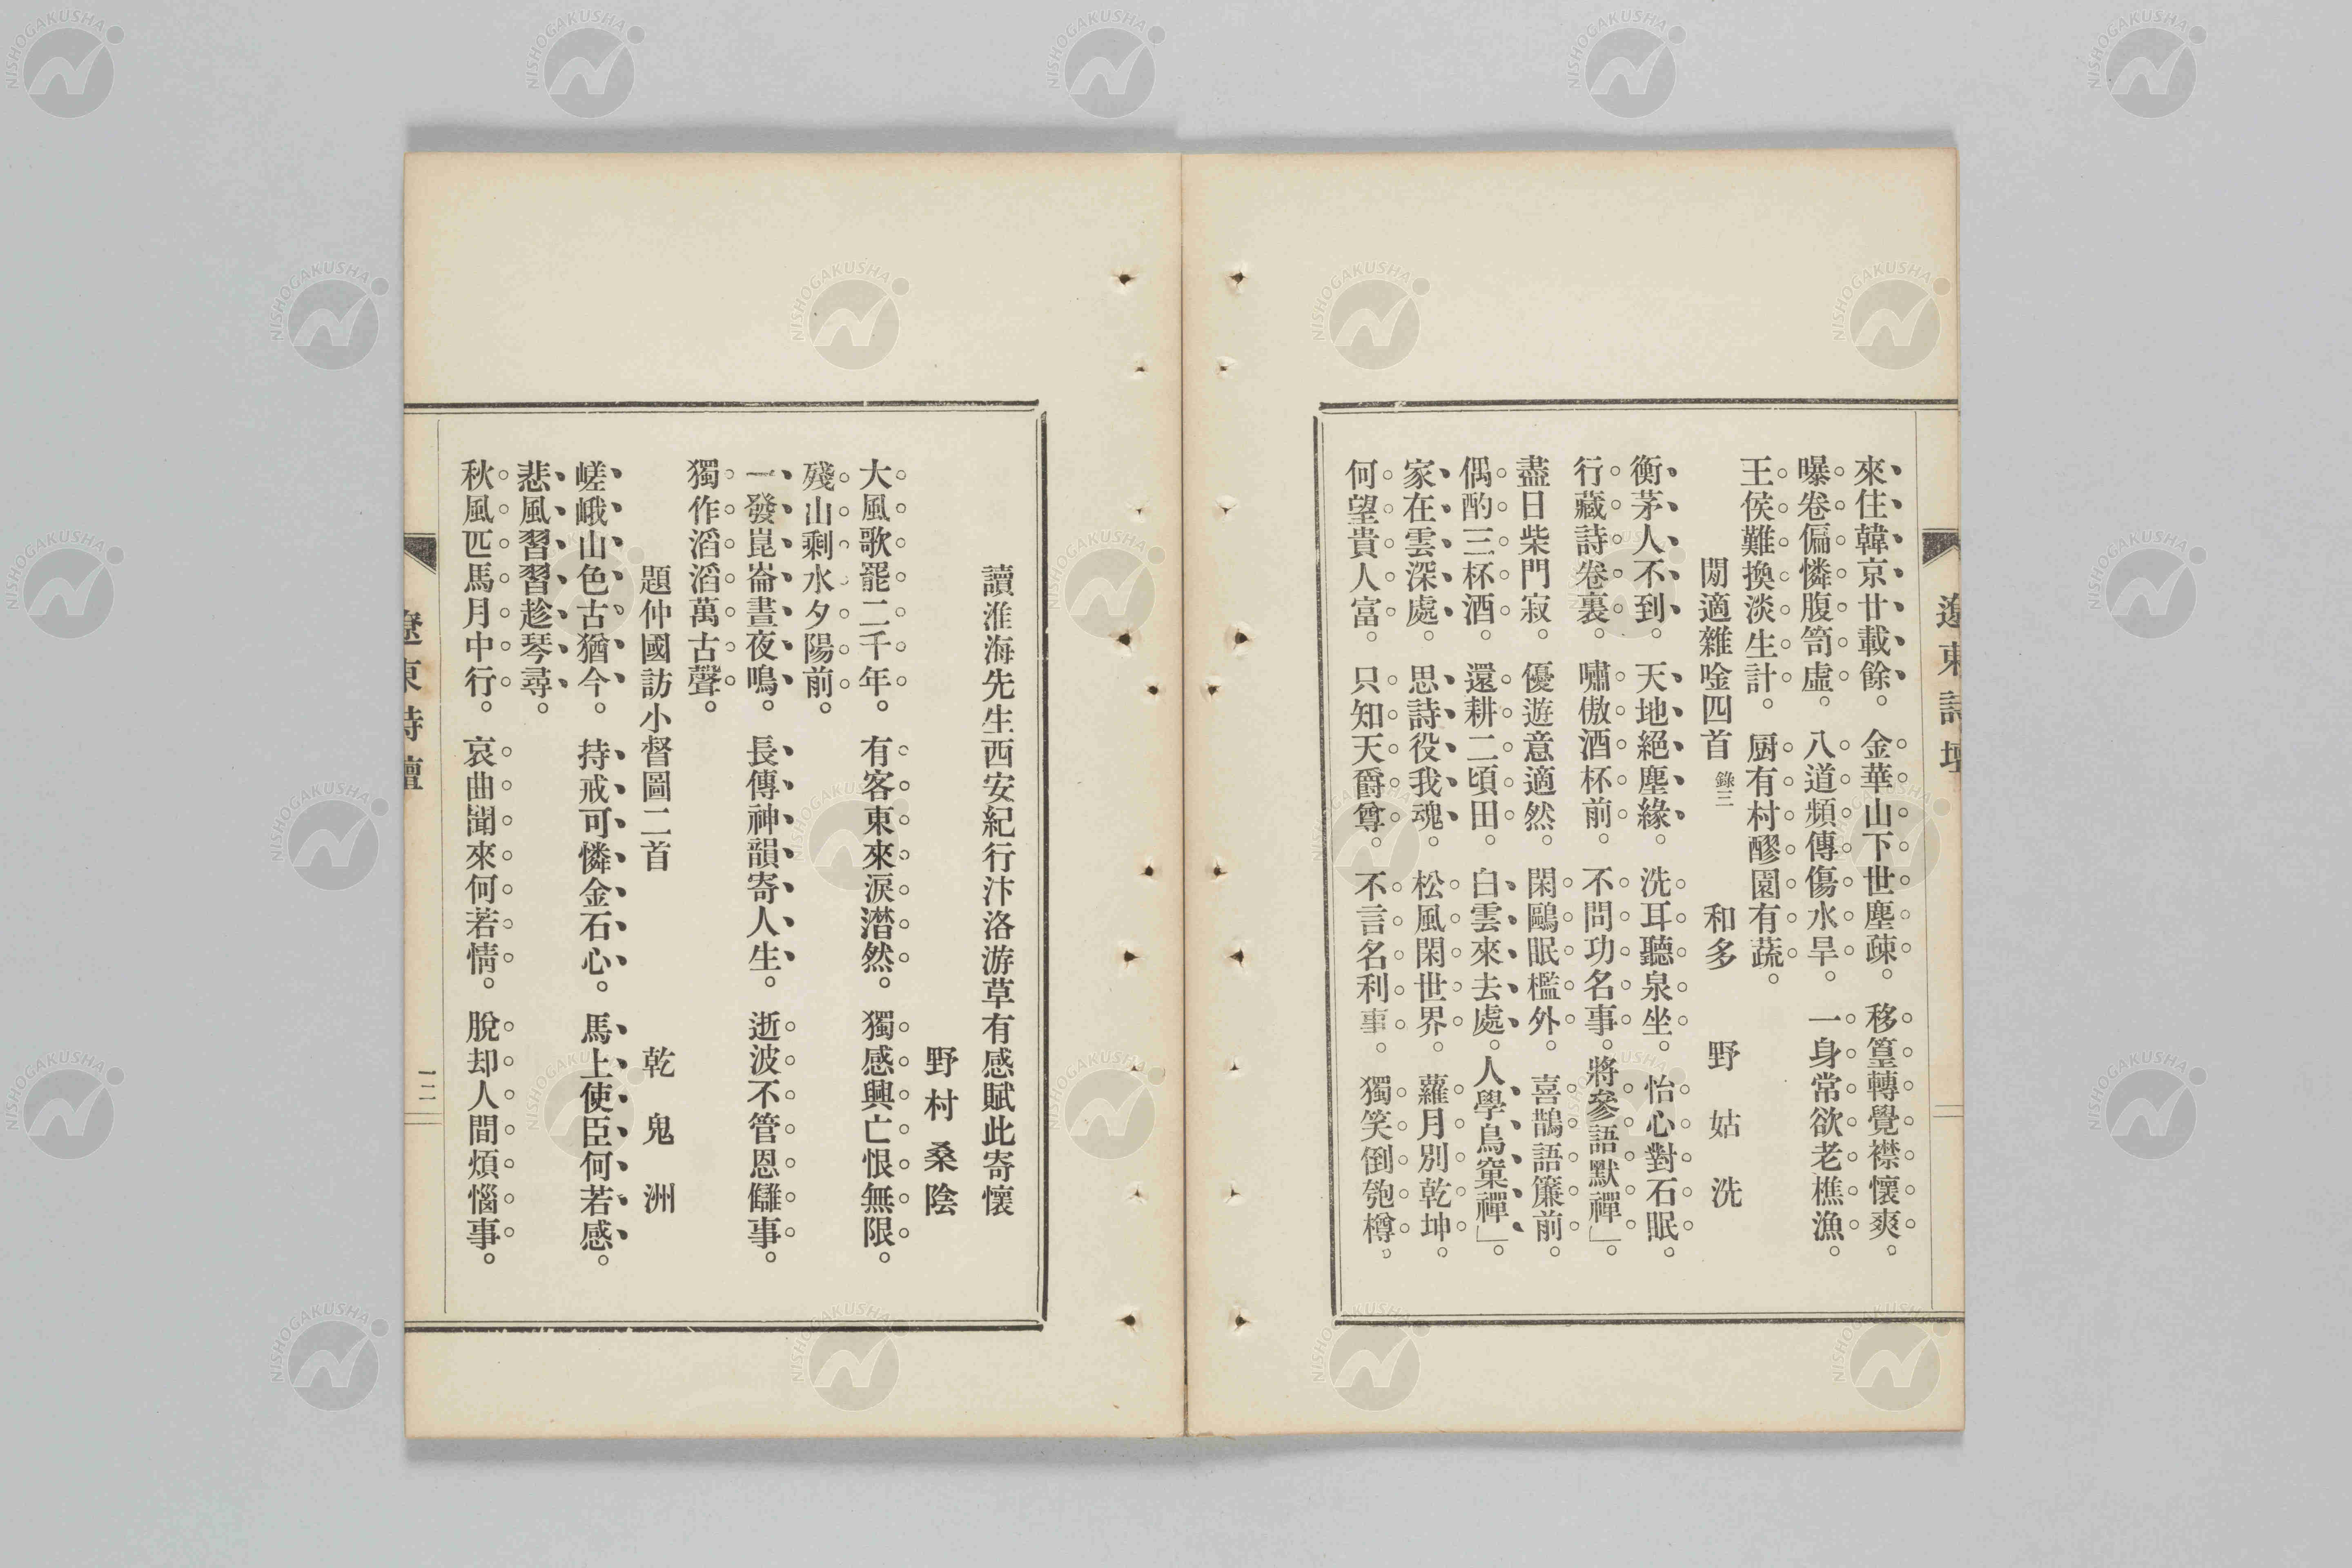 遼東詩壇
來住韓京廿載餘。金華山下世塵疎。移篁轉覺襟懷爽。
曝卷偏憐腹笥虛。八道頻傳傷水旱。一身常欲老樵漁。
王侯難換淡生計。厨有村醪園有蔬。
閒適雜唫四首 錄三 和多野姑洗
衡茅人不到。天地絕塵緣。洗耳聽泉坐。怡心對石眠。
行藏詩卷裏。嘯傲酒杯前。不問功名事。將參語默禪」。
盡日柴門寂。優遊意適然。閑鷗眠檻外。喜鵲語簾前。
偶酌三杯酒。還耕二頃田。白雲來去處。人學鳥窠禪」。
家在雲深處。思詩役我魂。松風閑世界。蘿月別乾坤。
何望貴人富。只知天爵尊。不言名利事。獨笑倒匏樽。
讀淮海先生西安紀行汴洛游草有感賦此寄懷
野村桑陰
大風歌罷二千年。有客東來淚潸然。獨感興亡恨無限。
殘山剩水夕陽前。
一發崑崙晝夜鳴。長傳神韻寄人生。逝波不管恩讎事。
獨作滔滔萬古聲。
題仲國訪小督圖二首 乾鬼洲
嵯峨山色古猶今。持戒可憐金石心。馬上使臣何若感。
悲風習習趁琴尋。
秋風匹馬月中行。哀曲聞來何若情。脫却人間煩惱事。
遼東詩壇
NISHOGAKUSHA